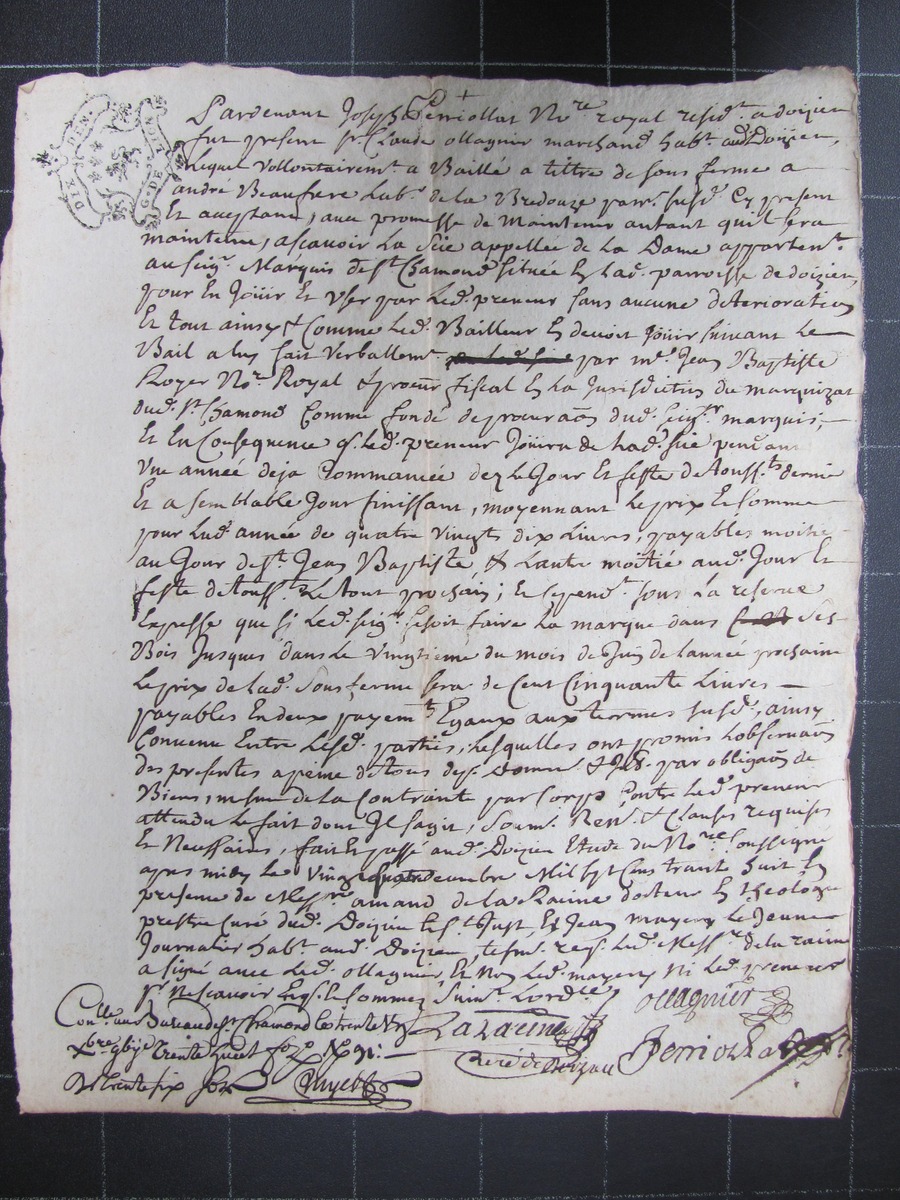 DIX DEN.
G. DE LYON
Pardevant Joseph Perriollat No.re royal resid.t a doizieu
fut present s.r Claude ollagnier marchand hab.t aud. Doizieu,
Lequel vollontairem.t a Baillé a tittre de sous ferme a
andré Beaufrere Lab.r de la parr. susd. Cy present
Et aceptant, avec promesse de maintenir autant quil sera
maintenu, ascavoir La Scie appellée de la Dame appartent.
au seig.r Marquis de S.t Chamond scituée En lad. parroisse de doizieu,
pour En Joüir Et User par led. preneur sans aucune deterioration
Et tout ainsy & Comme led. Bailleur En devoit Joüir suivant le
Bail a luy fait verballem.t par m.e Jean Baptiste
Royer No.re Royal & procur fiscal En la Jurisdiction du marquizat
dud. S.t Chamond Comme fondé de procuraôn dud. seig.r marquis,
Et En Consequence q. led. preneur Joüira de lad. scie pendant
Une année deja Commancée dez le Jour Et feste de Touss.ts dernie
Et a semblable Jour finissant, moyennant le prix Et somme
pour lad. année de quatre vingts dix Livres, payables moitié
au Jour de S.t Jean Baptiste & Lautre moitié aud. Jour Et
feste de Touss.t Le tout prochain; Et cepend.t sous la reserve
Expresse que si led. seig.r faire la marque dans ses
Bois Jusques dans le vingtieme du mois de Juin de lannée prochaine
Le prix de lad. sous ferme sera de Cent Cinquante Livres
payables En deux payem.ts Egaux aux termes susd., ainsy
Convenu Entre lesd. parties, Lesquelles ont promis Lobservaôn
des presentes a peine de tous dep. Dom. & par obligaôn de
Biens, mesme de la Contrainte par Corps Contre led. preneur
attendu le fait dont Il sagit, soum. Ren. & Clauses requises
Et Necessaires, fait Et passé aud. Doizieu Etude du No.re soussigné
apres midy le Vingt quatre Mil sept Cens trante huit En
presence de Mess.re amand de la Raine docteur En theologie
prestre Curé dud. Doizieu Et S.t Just, Et Jean mayery le Jeune
Journalier hab.t aud. Doizieu, tesm. req. led. Mess.re de la raine
a signé avec led. ollagnier, Et Non led. mayery Ni led. preneur
p.r Ne scavoir Enq. Et Sommez Suiv.t Lord.ce
ollagnier
Con.lle au Bureau de S.t Chamond le trente Un
Lazarine
Curé de Doizieu
Perriollat
x.bre trente huit